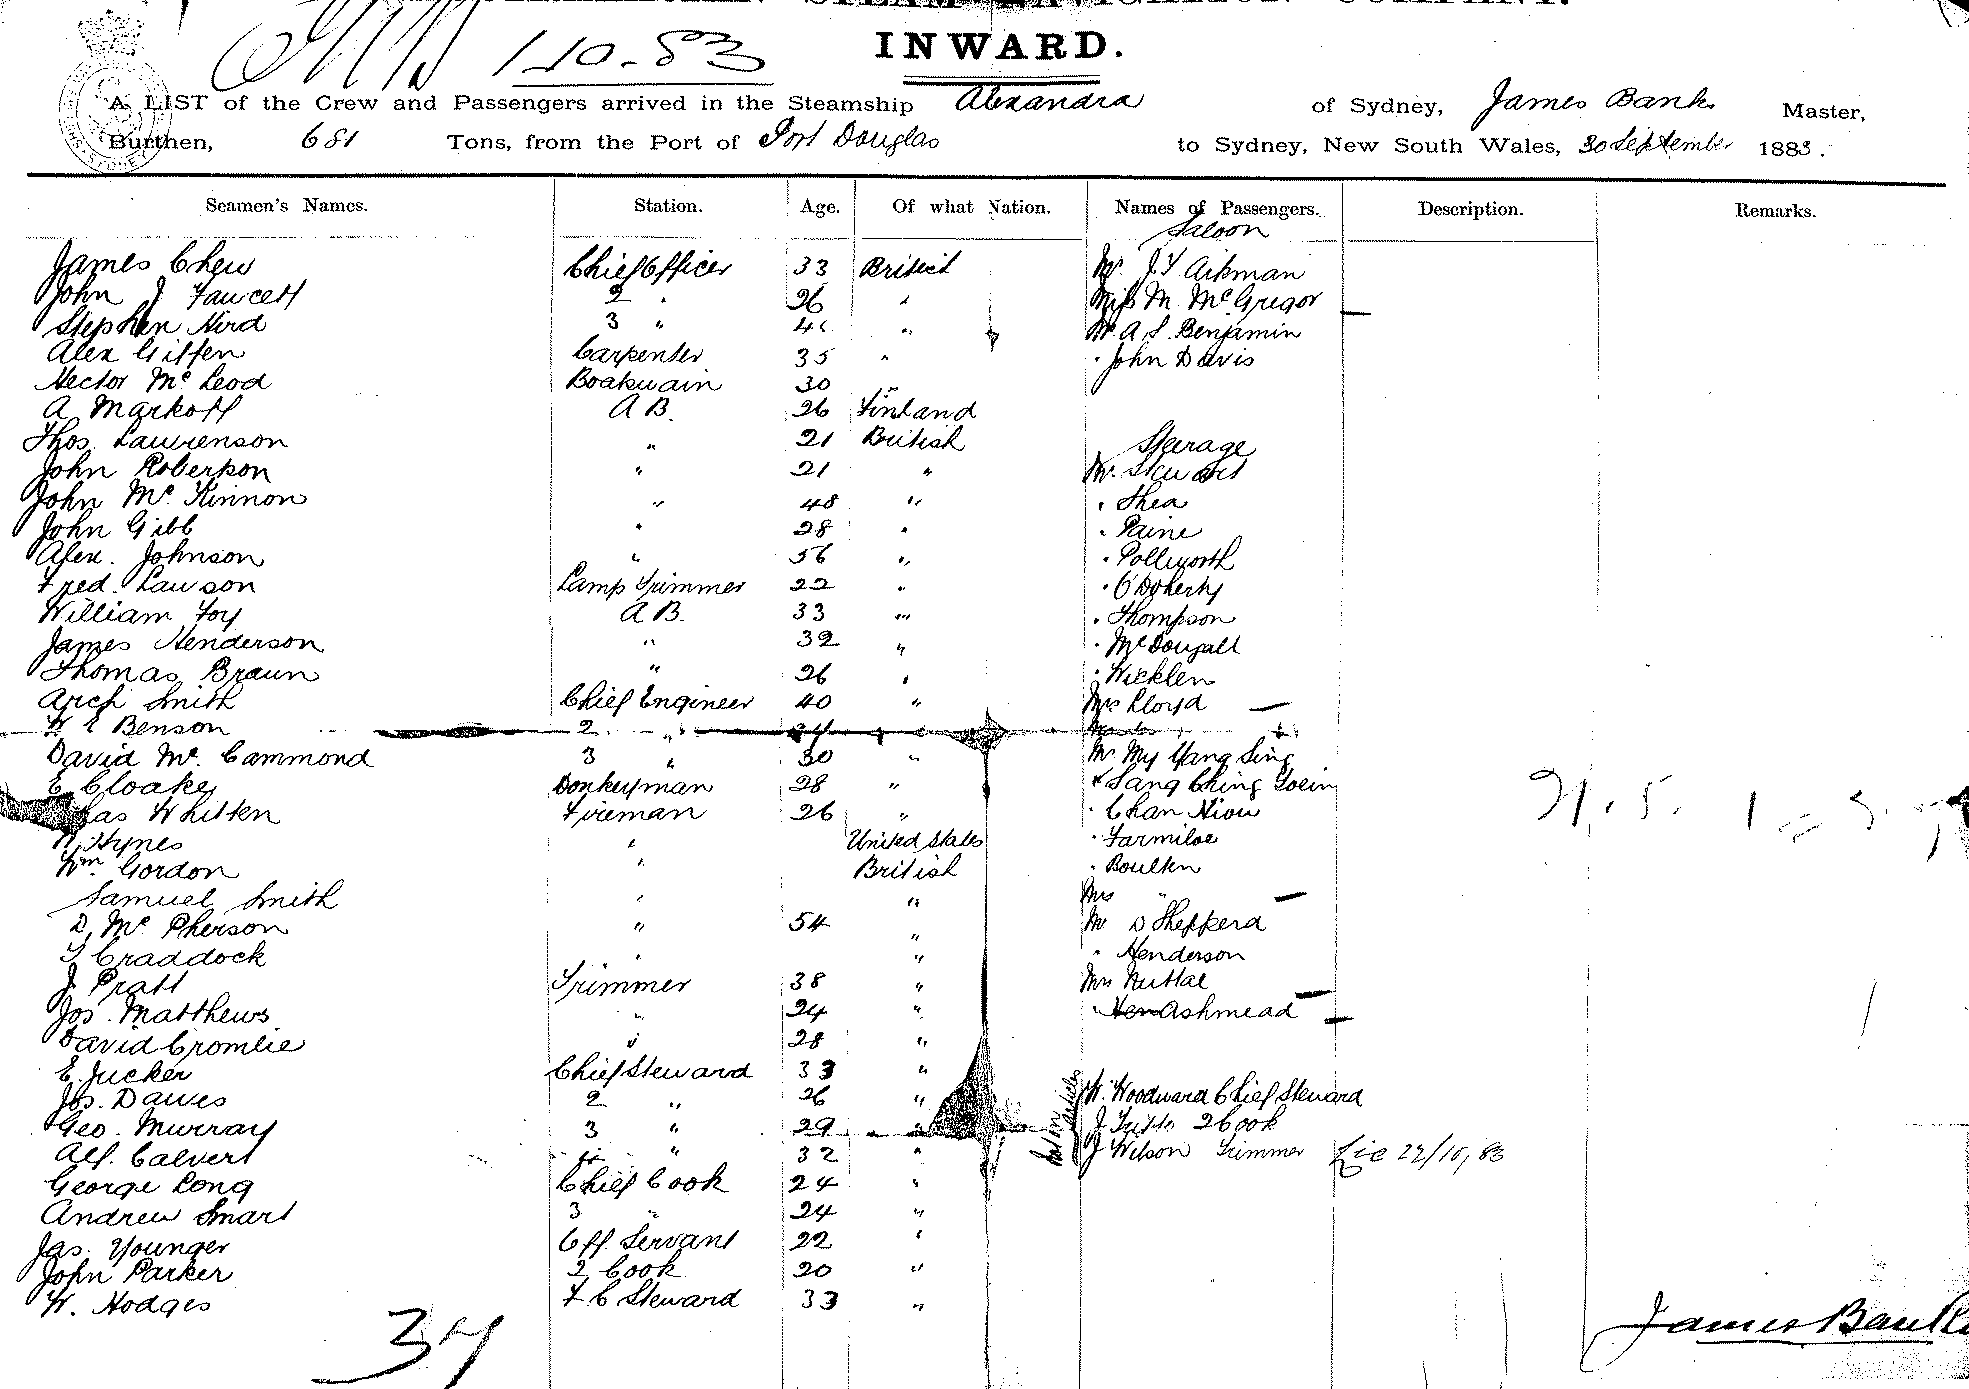 STEAM NAVIGATION COMPANY.
1-10-83
INWARD.
A LIST of the Crew and Passengers arrived in the Steamship Alexandra of Sydney, James Banks Master,
Burthen, 681 Tons, from the Port of Port Douglas to Sydney, New South Wales, 30 September 1883.
Seamen's Names. Station. Age. Of what Nation. Names of Passengers. Description. Remarks.
Saloon
James Chew Chief Officer 33 British Mr. J Y Arkman
John J Faucett 2 " 26 " Miss M McGregor —
Stephen Hird 3 " " Mr A S. Benjamin
Alex Giffen Carpenter 35 " " John Davis
Hector McLeod Boatswain 30 "
A Markoff A B. 26 Finland
Thos. Laurenson " 21 British Steerage
John Robertson " 21 " Mr. Stewart
John McKinnon " 48 " " Shea
John Gibb " 28 " " Paine
Alex. Johnson " 56 " " Pollworth
Fred. Lawson Lamp Trimmer 22 " " O'Doherty
William Foy A B. 33 " " Thompson
James Henderson " 32 " " McDougall
Thomas Braun " 26 " " Wicklen
Arch Smith Chief Engineer 40 " Mrs Lloyd —
W E Benson 2 " 34 "
David McCammond 3 " 30 " Mr My Yang Sing
E Cloake Donkeyman 28 " " Sang Ching Goein
Whitten Fireman 26 " " Chan Hiou
Hynes " United States " Farmiloe
Wm. Gordon " British " Boulten
Samuel Smith " " Mrs " —
D, McPherson " 54 " Mr D Shepperd
T Craddock " " " Henderson
J Pratt Trimmer 38 " Mrs Nuttal —
Jos. Matthews " 24 " " Ashmead —
David Cromlie " 28 "
E. Tucker Chief Steward 33 "
Jos. Dawes 2 " 26 " W. Woodward Chief Steward
Geo. Murray 3 " 29 " J Tutto 2 Cook
Alf. Calvert 4 " 32 " J Wilson Trimmer 22/10/83
George Long Chief Cook 24 "
Andrew Smart 3 " 24 "
Jas. Younger Off. Servant 22 "
John Parker 2 Cook 20 "
W. Hodges F C Steward 33 "
37
James Banks